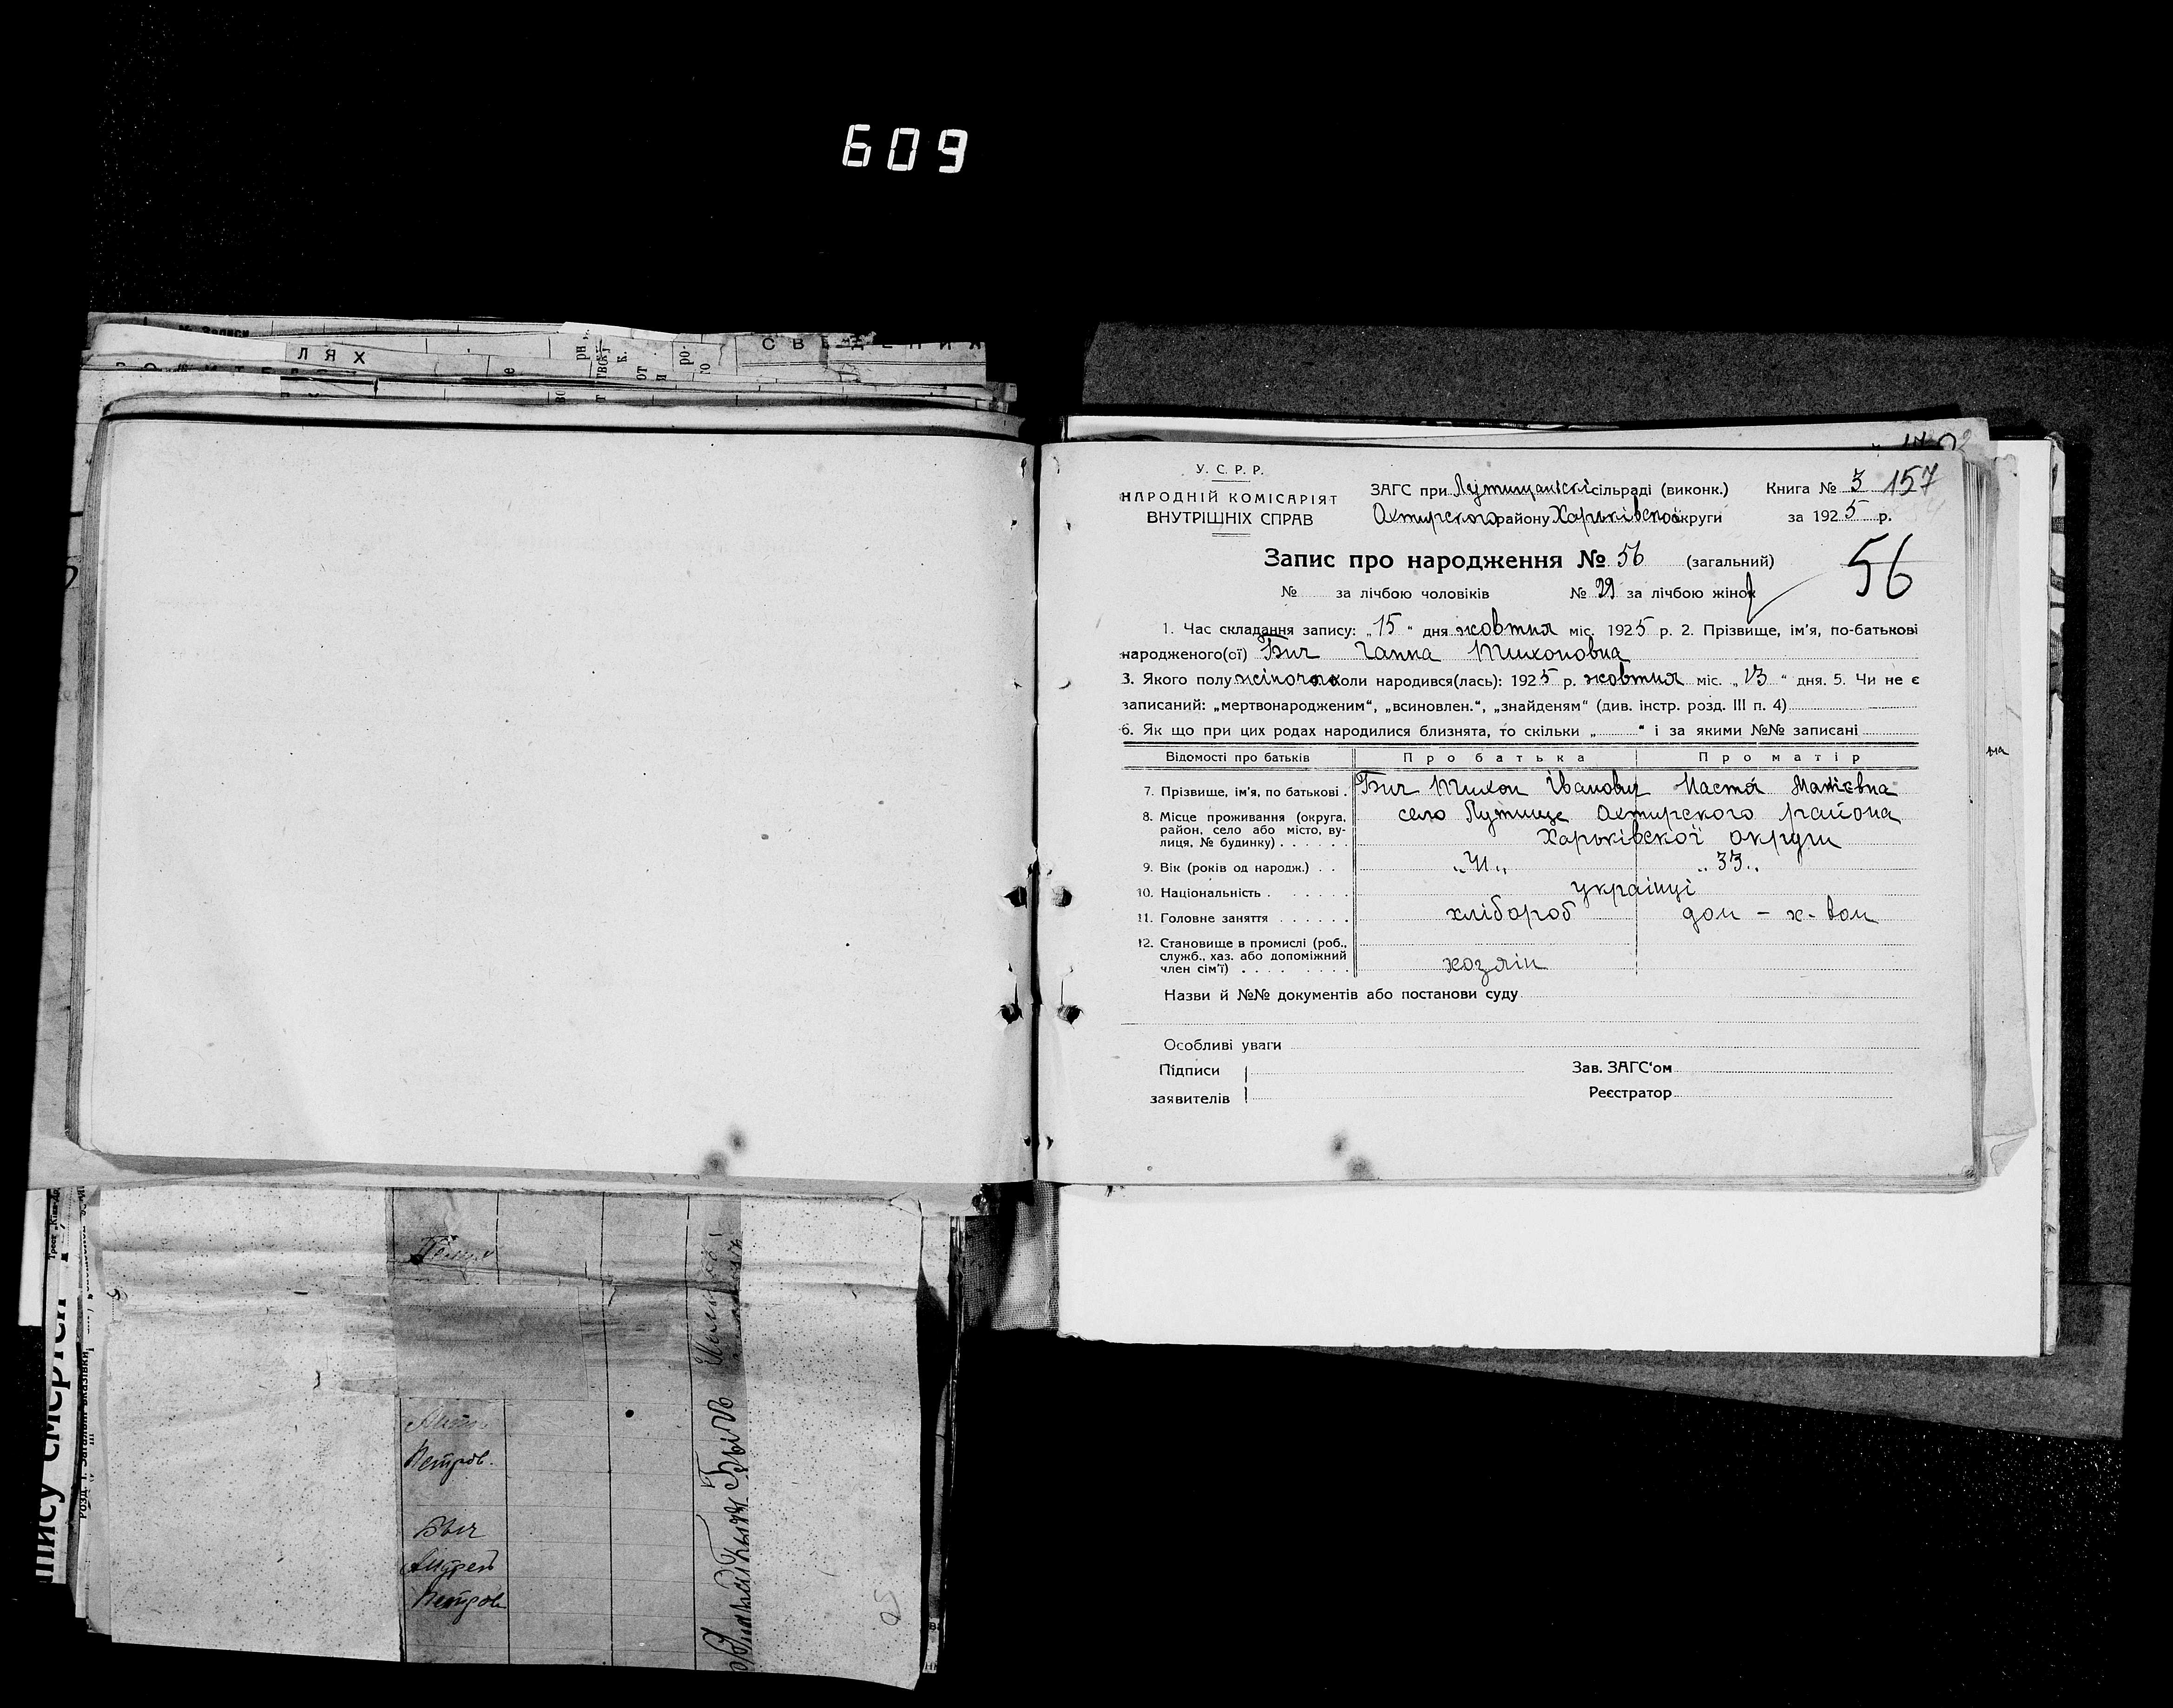 609
ЛЯХ
СВЕДЕНИЯ
У. С. Р. Р.
НАРОДНІЙ КОМІСАРІЯТ
ВНУТРІШНІХ СПРАВ
ЗАГС при Лутищанскі сільраді (виконк.) Книга № 3 157
Охтирского району Харьківскоі округи за 1925 р.
Запис про народження № 56 (загальний) 56
№ за лічбою чоловіків № 29 за лічбою жінок
1. Час складання запису: „15“ дня жовтня міс. 1925 р. 2. Прізвище, ім'я, по-батькові
народженого(ої) Бич Ганна Тихоновна
3. Якого полу жіночого коли народився(лась): 1925 р. жовтня міс. „13“ дня. 5. Чи не є
записаний: „мертвонародженим“, „всиновлен.“, „знайденям“ (див. інстр. розд. III п. 4)
6. Як що при цих родах народилися близнята, то скільки „ “ і за якими №№ записані
Відомості про батьків Про батька Про матір
7. Прізвище, ім'я, по батькові. Бич Тихон Іванович Настя Матієвна
8. Місце проживання (округа, село Лутище Охтирского района
район, село або місто, ву-
лиця, № будинку) Харьківскоі округи
9. Вік (років од народж.) „41„ „33„
10. Національність українці
11. Головне заняття хлібороб дом - х-вом
12. Становище в промислі (роб.,
служб., хаз. або допоміжний
член сім'ї) хозяін
Назви й №№ документів або постанови суду
Особливі уваги
Підписи Зав. ЗАГС'ом
заявителів Реєстратор
Петров.
Быч
Андрей
Петров